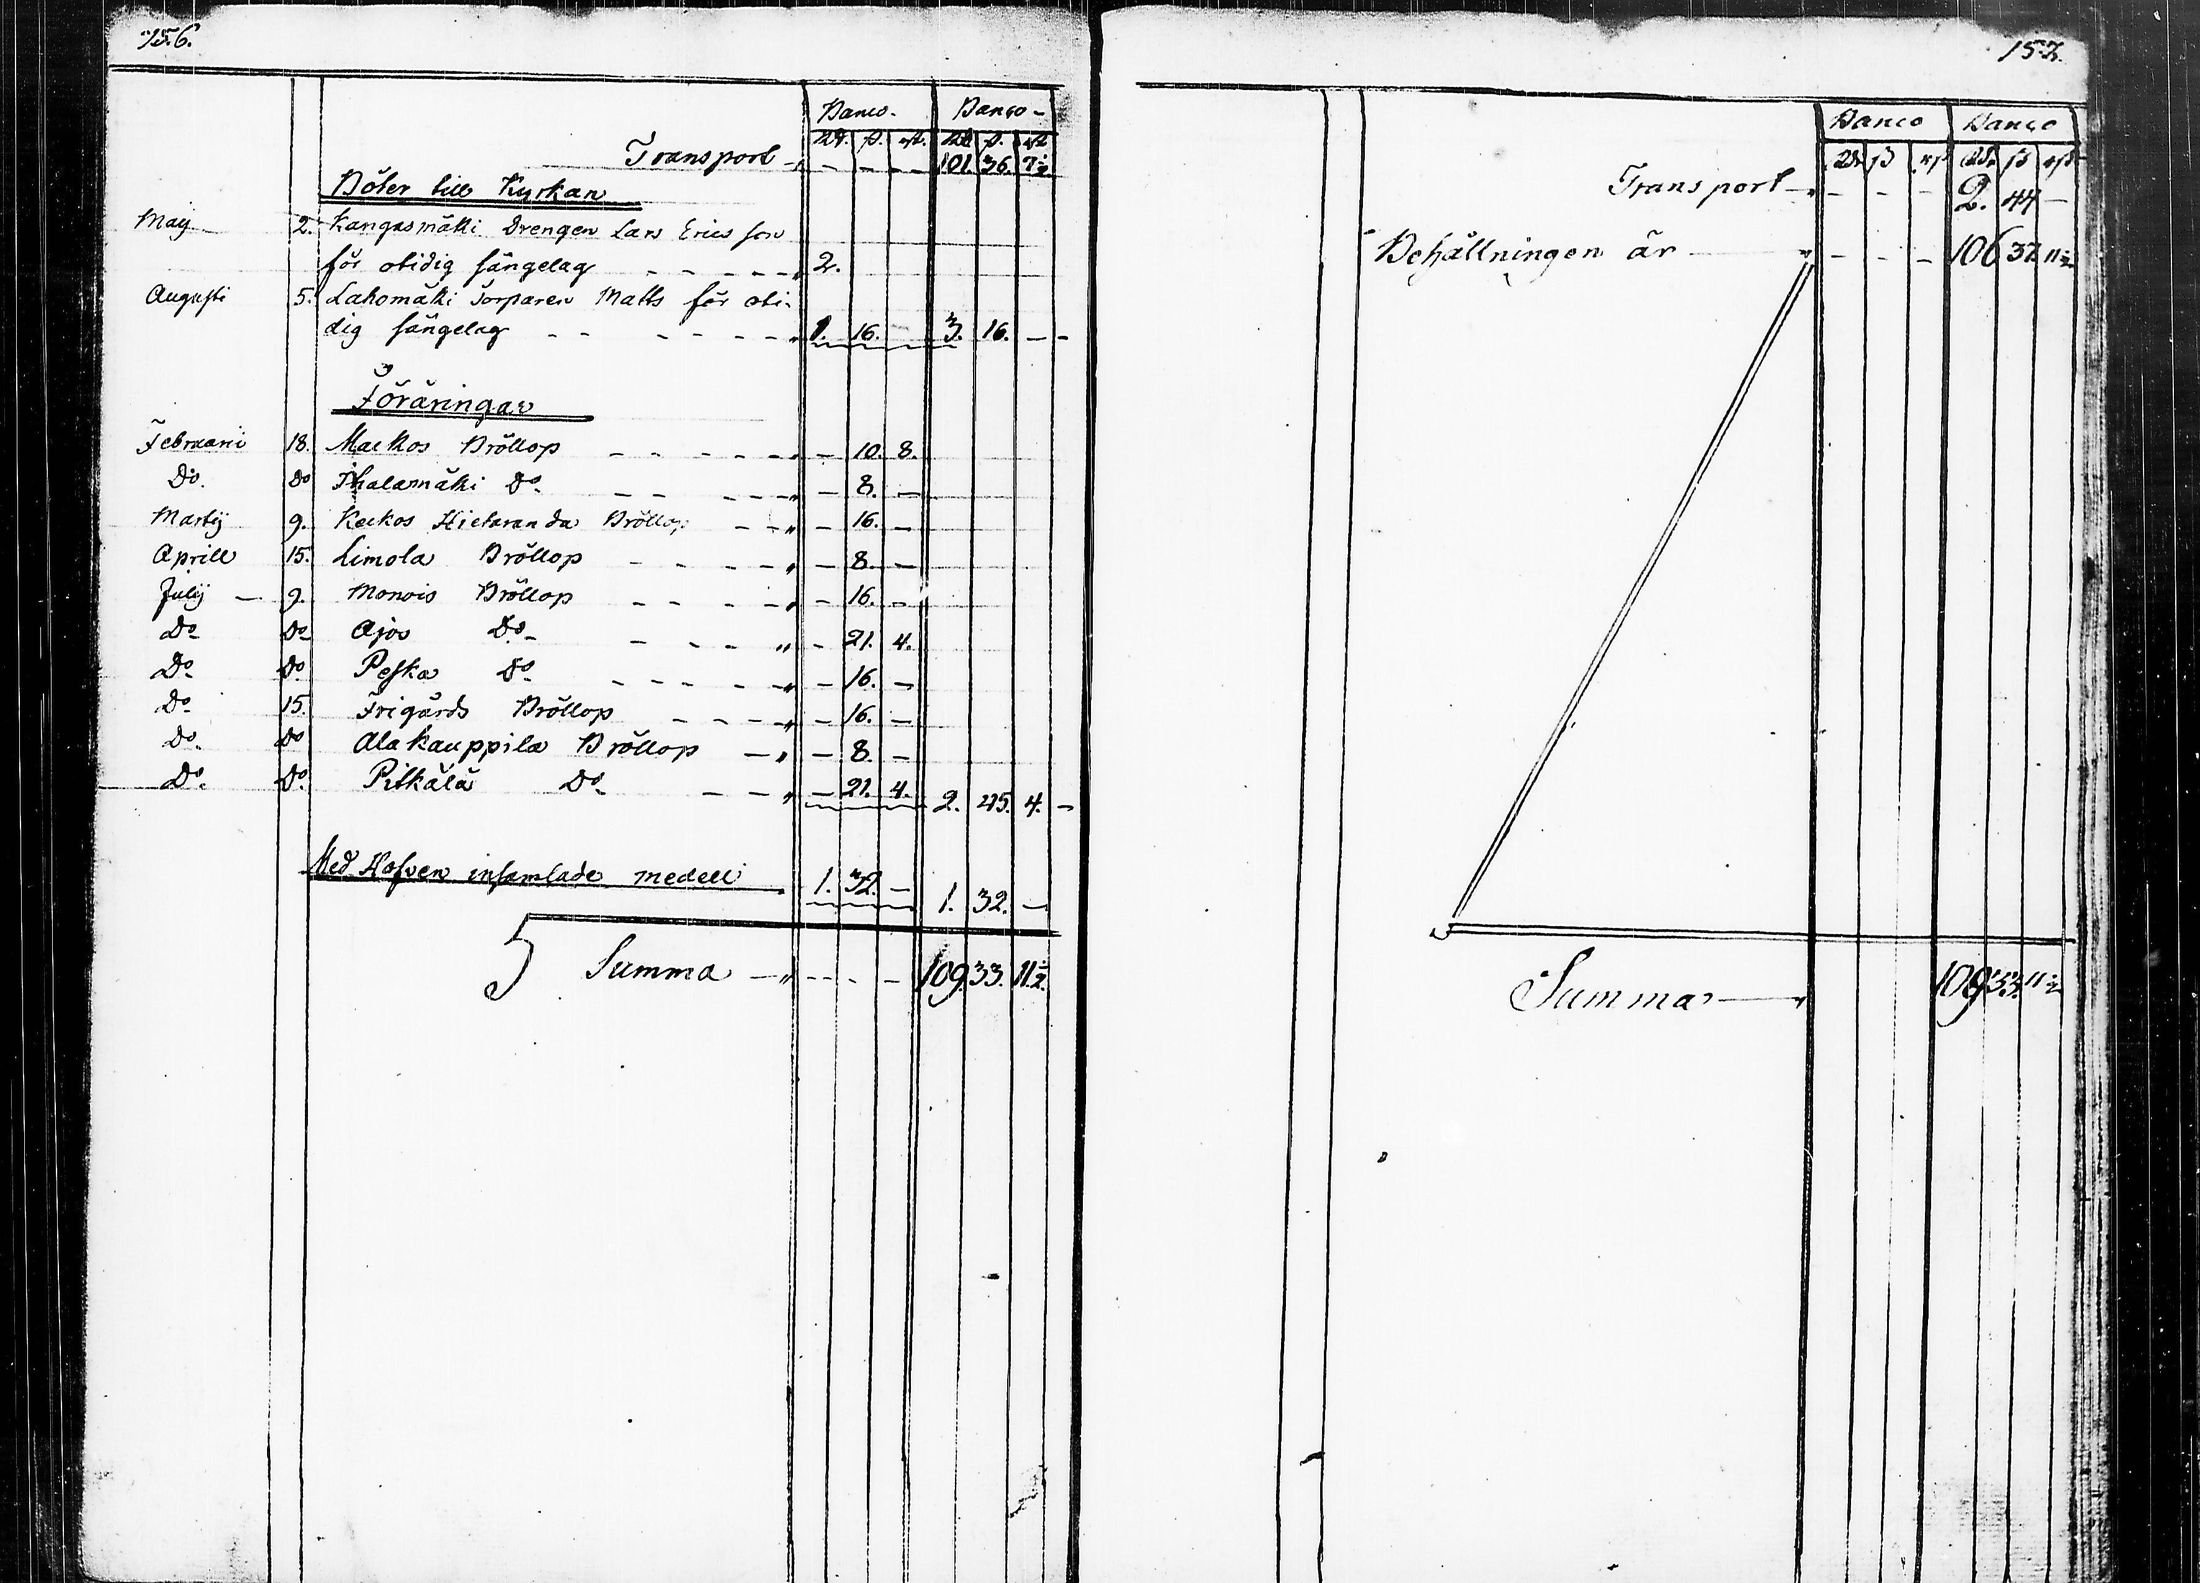 156.
Banco. Banco
Rd. ß. rst. Rd. ß. rst
Transport 101. 36. 7½
Böter till Kyrkan
Maij 2. Kangasmäki Drengen Lars Ericsson
för otidig sängelag 2.
Augusti 5. Lakomäki Torparen Matts för oti-
dig sängelag 1. 16. 3. 16. –
Föräringar
Februarii 18. Markos Bröllop – 10. 8.
Do. Do Ihalamäki Do – 8. –
Martij 9. Keckos Hietaranda Bröllop – 16. –
Aprill 15. Limola Bröllop – 8. –
Julij 9. Monois Bröllop – 16. –
Do Do Ajos Do – 21. 4.
Do Do. Peska Do – 16. –
Do 15. Frigårds Bröllop – 16. –
Do. Do Alakauppila Bröllop – 8. –
Do. Do. Pitkälä Do – 21. 4. 2. 45. 4.
Med Hofven insamlade medell 1. 32. – 1. 32. –
Summa 109. 33. 11½.
157.
Banco Banco
Rd. ß rst Rd. ß rst
Transport – – – 2. 44 –
Behållningen är – – – 106 37. 11½
Summa 109 33. 11½